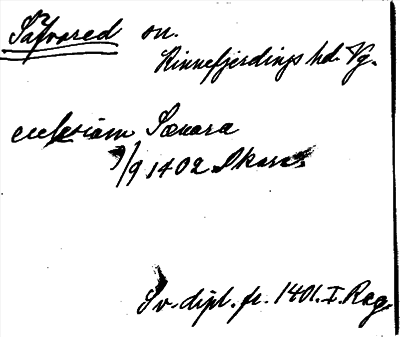 Säfvared sn.
Kinnefjerdings hd. Vg.
ecclesiam Sæuara
9/9 1402 Skara.
Sv. dipl. fr. 1401. I. Reg.